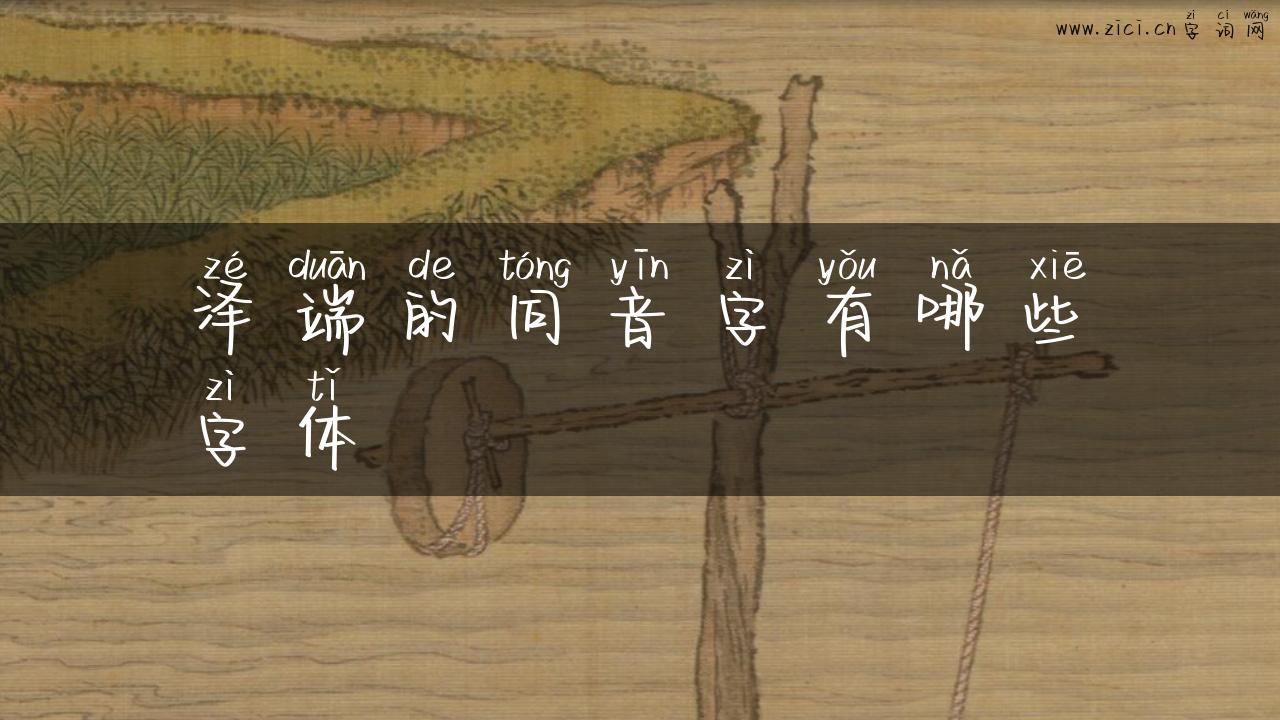 zì cí wǎng
www.zici.cn 字词网
zé duān de tóng yīn zì yǒu nǎ xiē
泽端的同音字有哪些
zì tǐ
字体